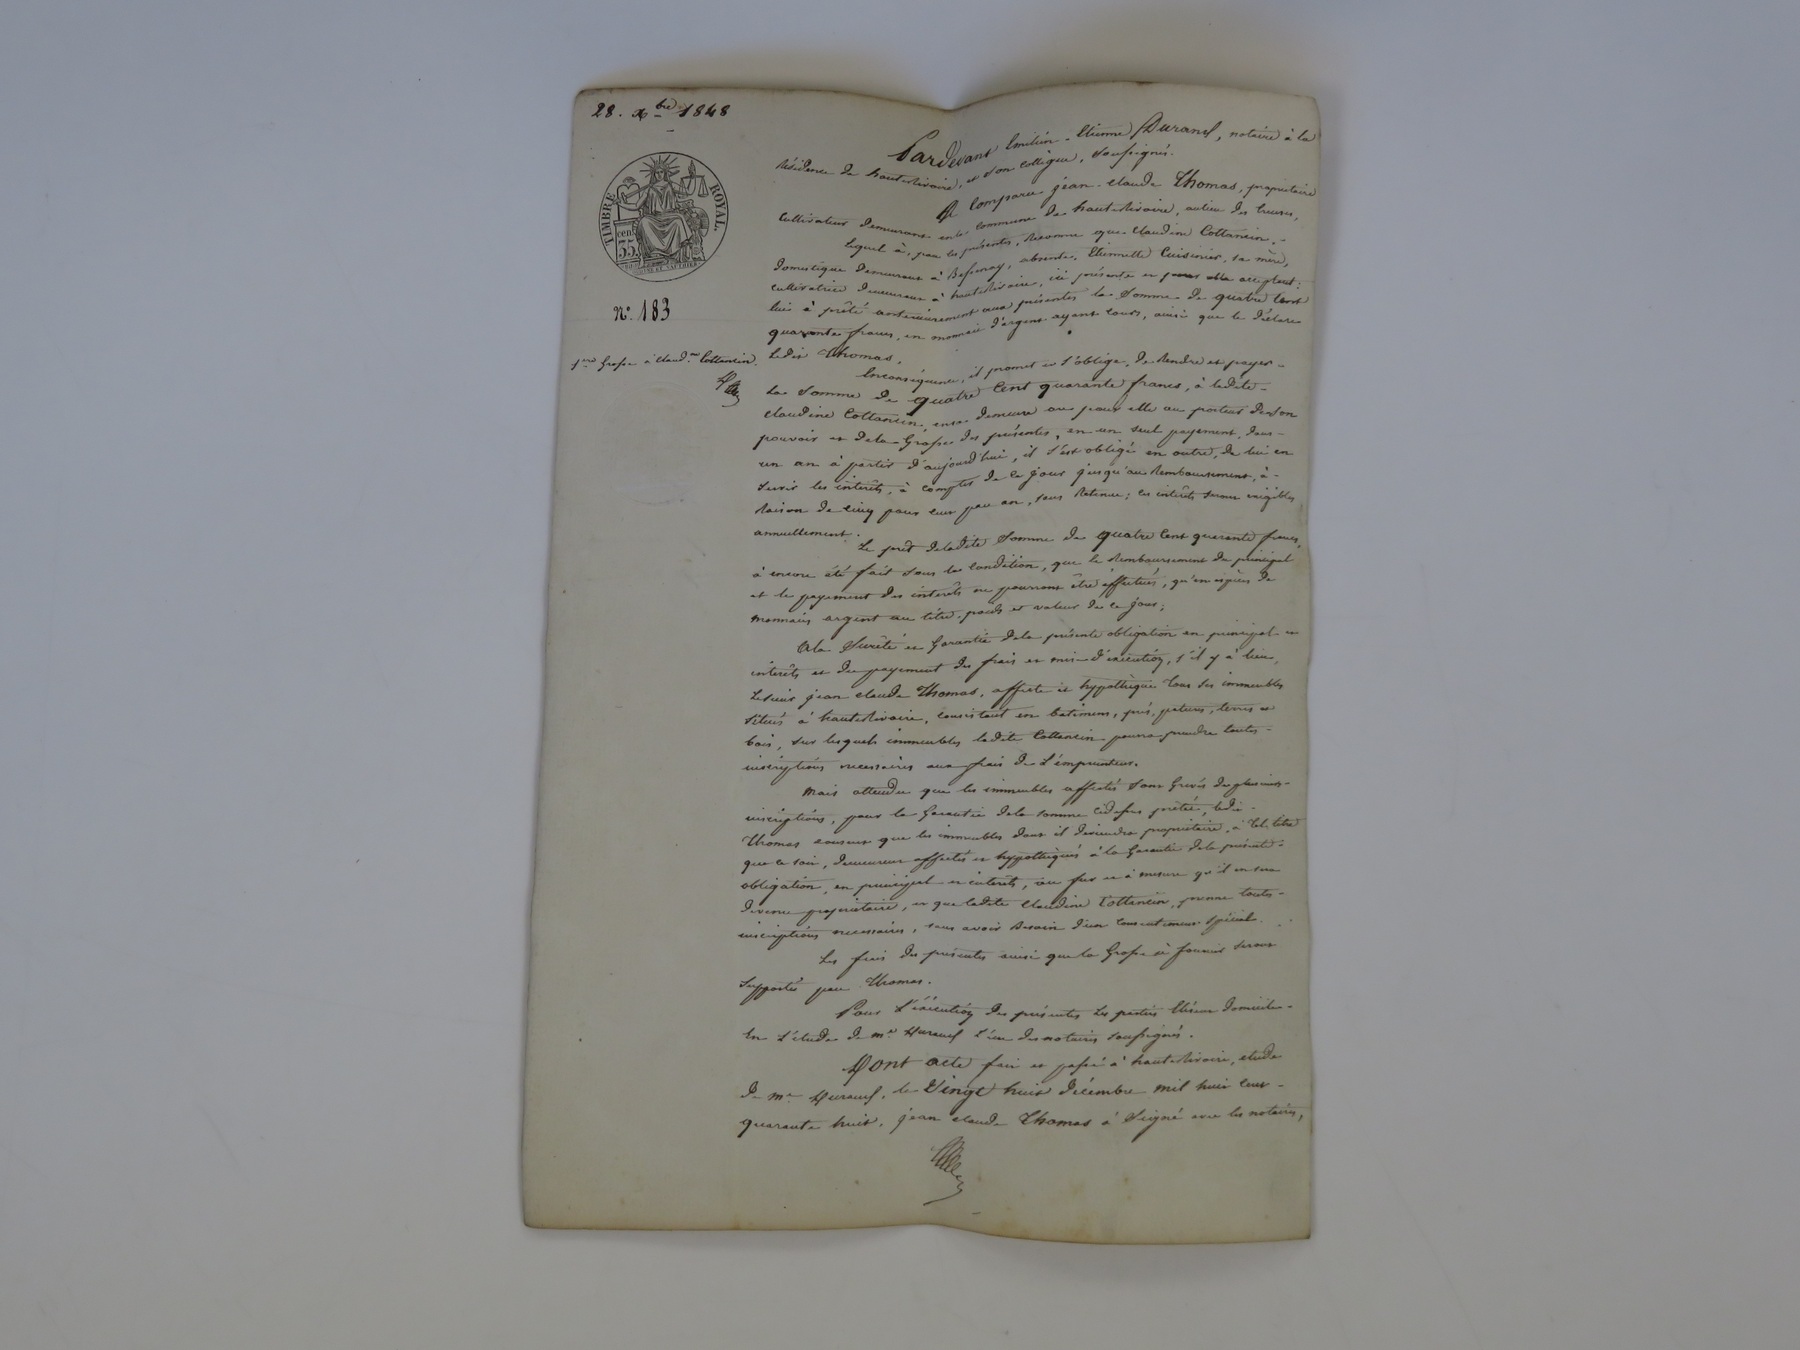 28. Xbre 1848
TIMBRE ROYAL.
cen. 35.
N°. 183
1ere Grosse à Claud.ne Cottancin.
Pardevant Emilien-Etienne Durand, notaire à la
Résidence de hauterivoire, et son collègue, soussignés.
A Comparu jean-claude Thomas, propriétaire
Cultivateur demeurant en la commune de hauterivoire, au lieu des
Lequel à, par les présentes, Reconnu que Claudine Cottancin,
domestique demeurant à Bessenay, absente, Etiennette Cuisinier, sa mère,
cultivatrice demeurant à hauterivoire, ici présente et pour elle acceptant:
lui à prêté antérieurement aux présentes la Somme de quatre Cent
quarante francs, en monnaie d'argent ayant Cours, ainsi que le déclare
Ledit Thomas.
Enconséquence, il promet et s'oblige, de Rendre et payer
La Somme de quatre Cent quarante francs, à ladite
Claudine Cottancin, en sa demeure ou pour elle au porteur de son
pouvoir et dela Grosse des présentes, en un seul payement, dans
un an à partir d'aujourd'hui, il s'est obligé en outre, de lui en
Servir les intérêts, à compter de ce jour jusqu'au Remboursement, à
Raison de Cinq pour cent par an, sans Retenue; ces intérêts seront exigibles
annuellement.
Le prêt deladite Somme de quatre Cent quarante francs,
à encore été fait sous la Condition, que le Remboursement du principal
et le payement des intérêts ne pourront être éffectués, qu'en espèces de
monnaies argent au titre, poids et valeur de ce jour;
Ala Sureté et Garantie dela présente obligation en principal et
intérêts et du payement des frais et mis d'exécution, s'il y à lieu,
Ledit jean claude Thomas, affecte et hypothèque Tous ses immeubles
Situés à hauterivoire, consistant en batimens, prés, patures, terres et
bois, sur lesquels immeubles ladite Cottancin pourra prendre toutes
inscriptions necessaires aux frais de L'emprunteur.
Mais attendu que les immeubles affectés sont Grevés de plusieurs
inscriptions, pour la Garantie dela somme cidessus prêtée, ledit
Thomas consent que les immeubles dont il deviendra propriétaire, à tel titre
que ce soit, demeurent affectés et hypothéqués à la Garantie dela présente
obligation, en principal et intérêts, au fur et à mesure qu'il en sera
devenu propriétaire, et que ladite Claudine Cottancin, prenne toutes
inscriptions necessaires, sans avoir Besoin d'un Consentement spécial.
Les frais des présentes ainsi que la Grosse à fournir seront
Supportés par Thomas.
Pour L'éxécution des présentes Les parties Elisent domicile
En L'étude de me Durand L'un des notaires soussignés.
Dont acte fait et passé à hauterivoire, étude
de me Durand, le Vingt huit décembre mil huit cent
quarante huit. jean claude Thomas à Signé avec les notaires,